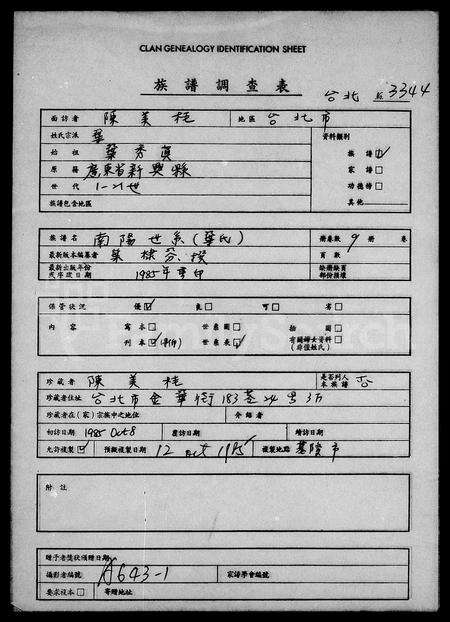 CLAN GENEALOGY IDENTIFICATION SHEET
族譜調查表
台北 3344
面訪者 陳美桂 地區 台北市
姓氏宗派 葉 資料類別
始祖 葉秀真 族譜 ☑
原籍 廣東省新興縣 家譜 □
世代 1-21世 功德榜 □
族譜包含地區 其他
族譜名 南陽世系(葉氏) 冊卷數 9 冊 卷
最新版本編纂者 葉 頁數
最新出版年份或序跋日期 1985年 印
保管狀況 優 ☑ 良 □ 可 □ 劣 □
內容 寫本 □ 世系圖 □ 插圖 □
刊本 ☑ 世系表 ☑ 有關婦女資料 (非僅姓氏) □
珍藏者 陳美桂 是否列入本族譜 否
珍藏者住址 台北市金華街183巷24号3F
珍藏者在(家)宗族中之地位 介紹者
初訪日期 1985 Oct 8 應訪日期 續訪日期
允許複製 ☑ 預擬複製日期 12 Oct 1985 複製地點 基隆市
附註
贈予者獎狀頒贈日期
攝影者編號 A643-1 家譜學會編號
要求複本 □ 寄贈地址